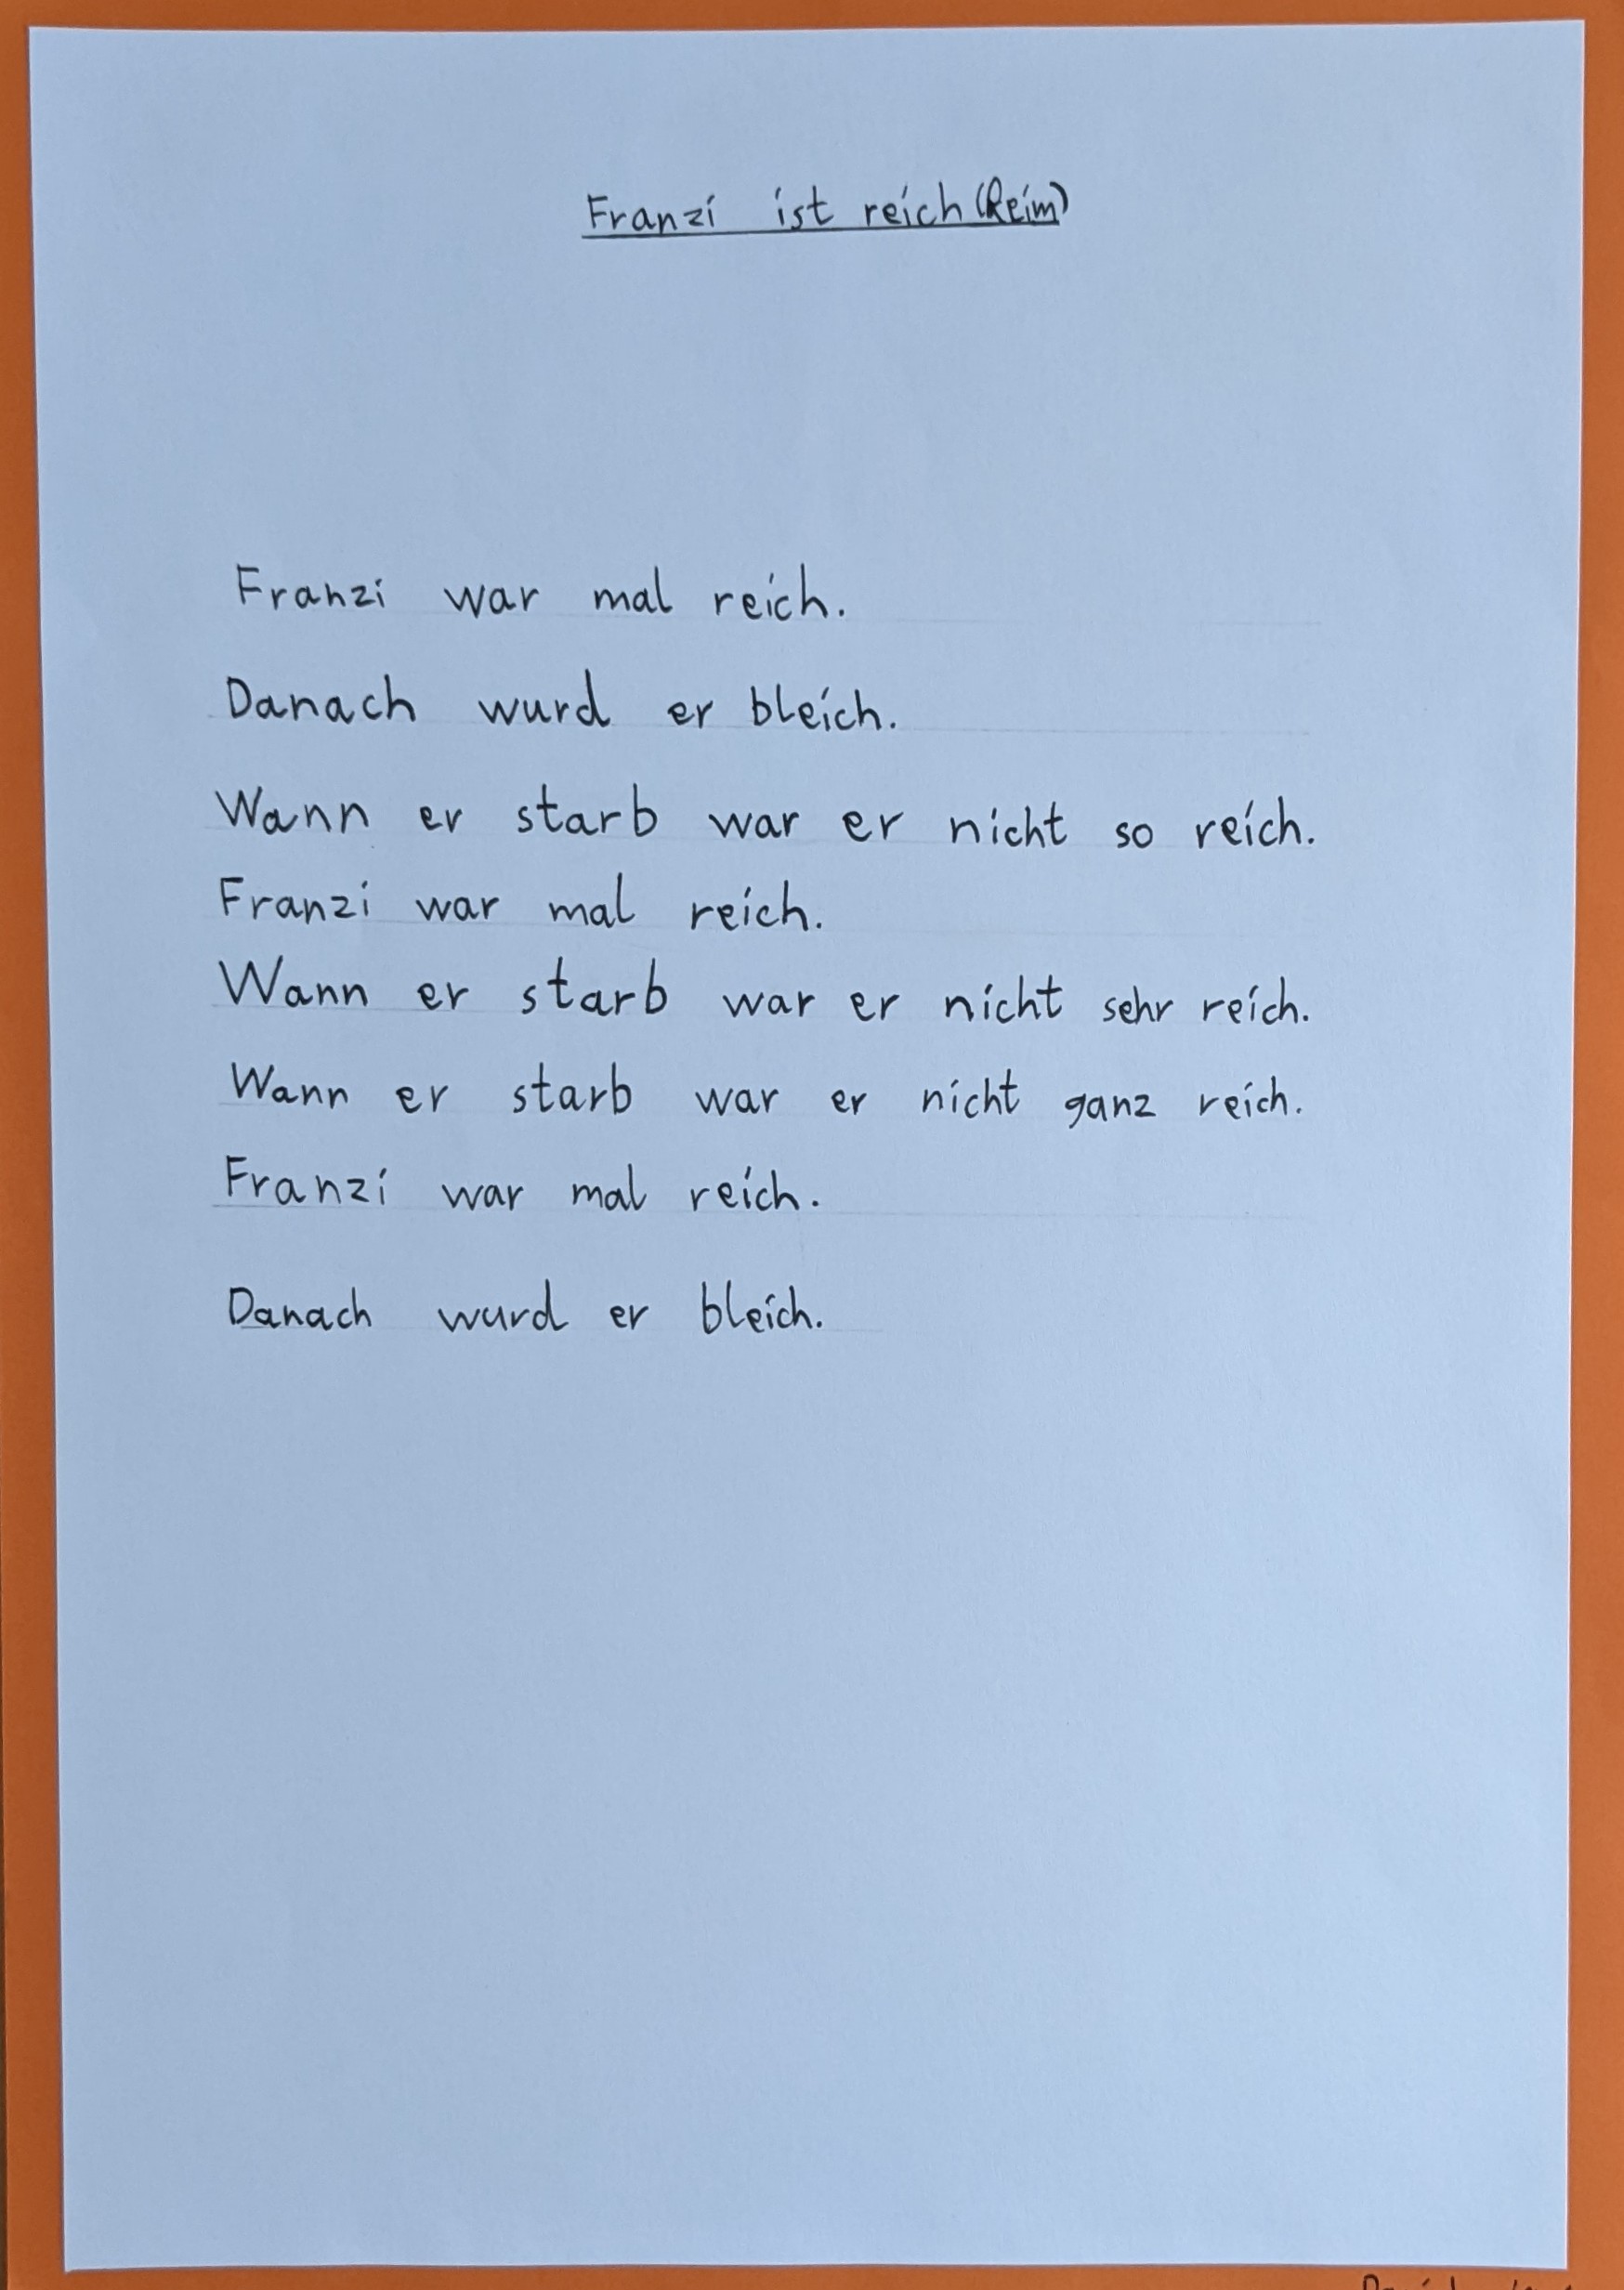 Franzi ist reich (Reim)
Franzi war mal reich.
Danach wurd er bleich.
Wann er starb war er nicht so reich.
Franzi war mal reich.
Wann er starb war er nicht sehr reich.
Wann er starb war er nicht ganz reich.
Franzi war mal reich.
Danach wurd er bleich.